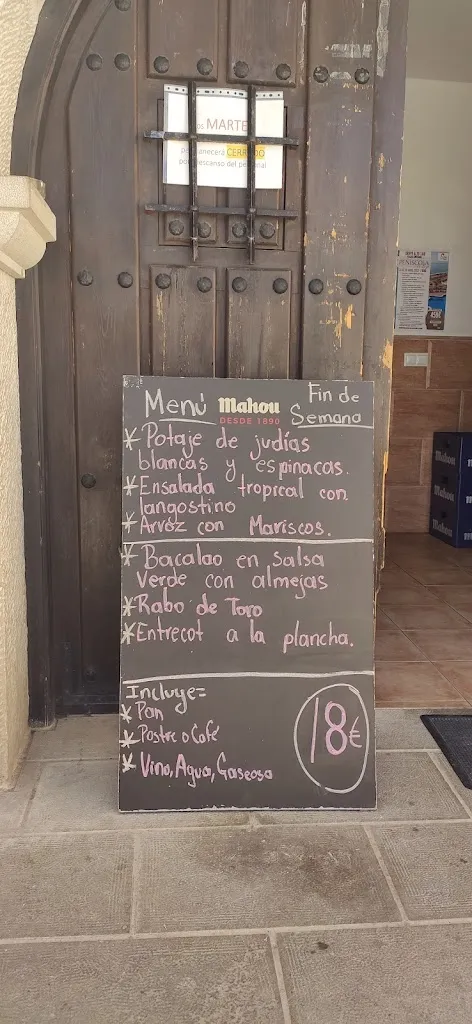 MARTE
CERRADO
por descanso del personal
Menú Mahou Fin de
DESDE 1890 Semana
*Potaje de judías
blancas y espinacas.
*Ensalada tropical con
langostino
*Arroz con Mariscos.
*Bacalao en salsa
Verde con almejas
*Rabo de Toro
*Entrecot a la plancha.
Incluye=
*Pan
*Postre o Café
*Vino, Agua, Gaseosa
18€
PEÑISCOLA
Mahou